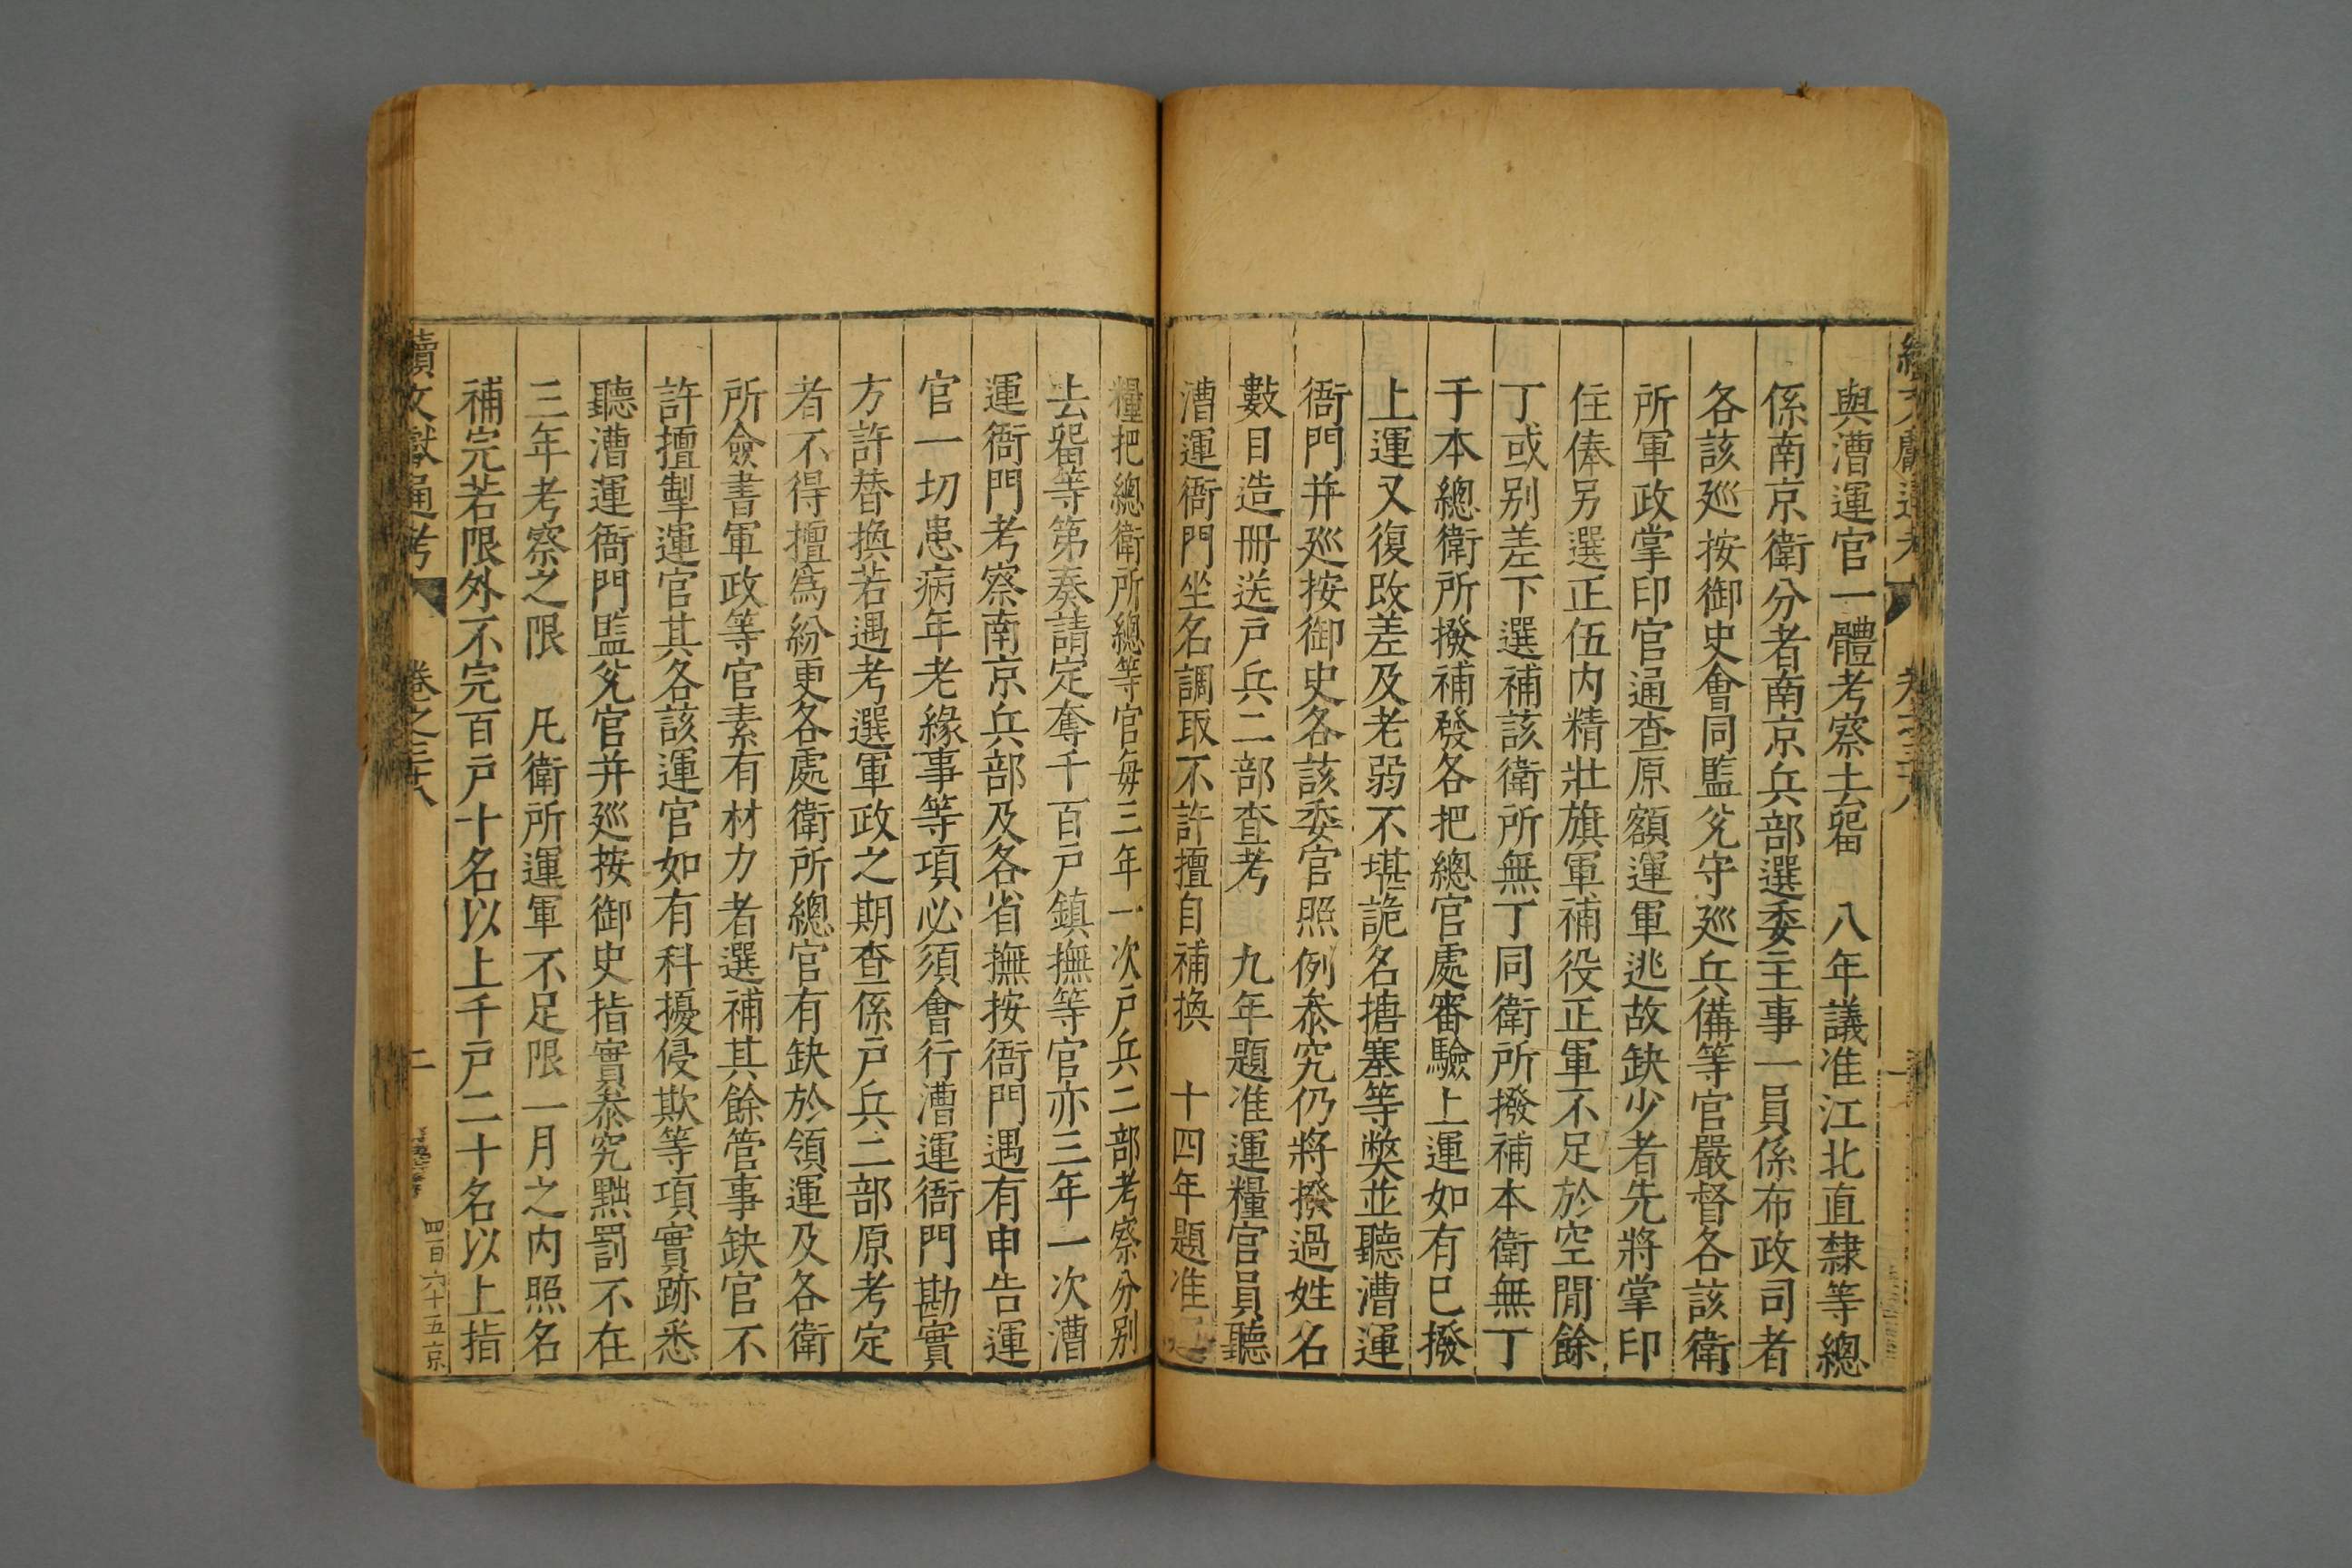 與漕運官一體考察去畱　八年議准江北直隸等總
係南京衛分者南京兵部選委主事一員係布政司者
各該廵按御史會同監兊守廵兵備等官嚴督各該衛
所軍政掌印官通查原額運軍逃故缺少者先將掌印
住俸另選正伍内精壯旗軍補役正軍不足於空閒餘
丁或别差下選補該衛所無丁同衛所撥補本衛無丁
于本總衛所撥補發各把總官處審驗上運如有已撥
上運又復改差及老弱不堪詭名搪塞等弊並聽漕運
衙門并廵按御史各該委官照例叅究仍將撥過姓名
數目造冊送戸兵二部查考　九年題准運糧官員聽
漕運衙門坐名調取不許擅自補換　十四年題准運
糧把總衛所總等官毎三年一次戸兵二部考察分别
去畱等第奏請定奪千百戸鎮撫等官亦三年一次漕
運衙門考察南京兵部及各省撫按衙門遇有申告運
官一切患病年老緣事等項必須會行漕運衙門勘實
方許替換若遇考選軍政之期查係戸兵二部原考定
者不得擅爲紛更各處衛所總官有缺於領運及各衛
所僉書軍政等官素有材力者選補其餘管事缺官不
許擅掣運官其各該運官如有科擾侵欺等項實跡悉
聽漕運衙門監兊官并廵按御史指實叅究黜罰不在
三年考察之限　凡衛所運軍不足限一月之内照名
補完若限外不完百戸十名以上千戸二十名以上指
續文獻通考　卷之三十八　二　四百六十五　京